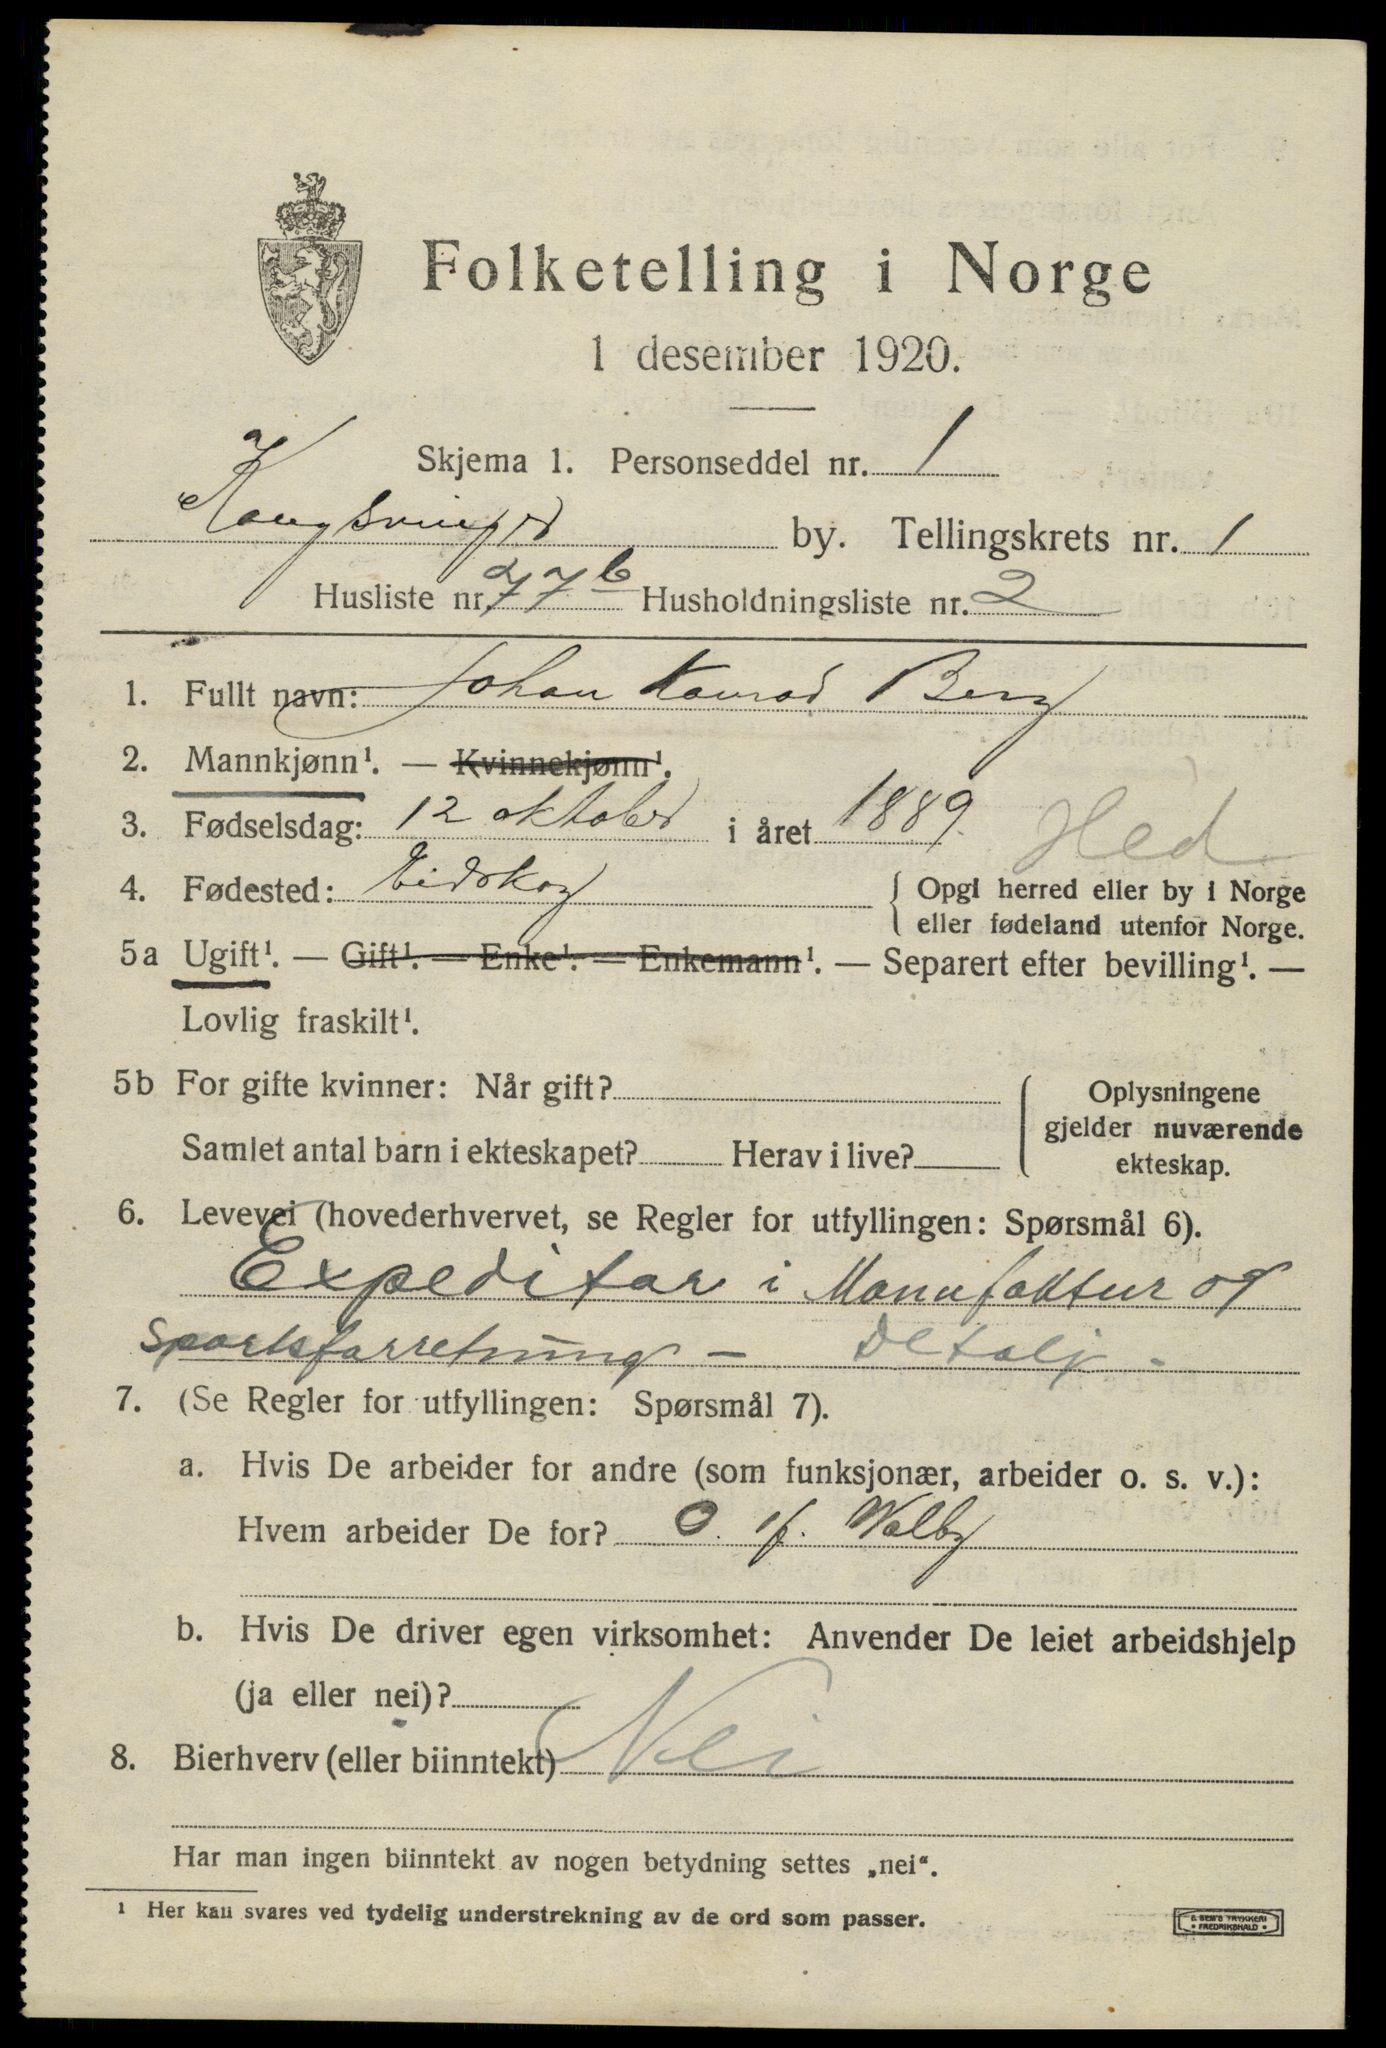 Folketelling i Norge
1 desember 1920.
Skjema 1. Personseddel nr. 1
Kongsvinger by. Tellingskrets nr. 1
Husliste nr. 77b Husholdningsliste nr. 2
1. Fullt navn: Johan Konrad Berg
2. Mannkjønn¹. — Kvinnekjønn¹.
3. Fødselsdag: 12 oktober i året 1889. Hed
4. Fødested: Eidskog { Opgi herred eller by i Norge
eller fødeland utenfor Norge.
5a Ugift¹. — Gift¹. — Enke¹. — Enkemann¹. — Separert efter bevilling¹. —
Lovlig fraskilt¹.
5b For gifte kvinner: Når gift? { Oplysningene
gjelder nuværende
Samlet antal barn i ekteskapet? Herav i live? ekteskap.
6. Levevei (hovederhvervet, se Regler for utfyllingen: Spørsmål 6).
Expeditør i Manufaktur og
Sportsforretning – Detalj.
7. (Se Regler for utfyllingen: Spørsmål 7).
a. Hvis De arbeider for andre (som funksjonær, arbeider o. s. v.):
Hvem arbeider De for? O. Walby
b. Hvis De driver egen virksomhet: Anvender De leiet arbeidshjelp
(ja eller nei)?
8. Bierhverv (eller biinntekt) Nei
Har man ingen biinntekt av nogen betydning settes „nei“.
¹ Her kan svares ved tydelig understrekning av de ord som passer.
E. SEM'S TRYKKERI
• FREDRIKSHALD •